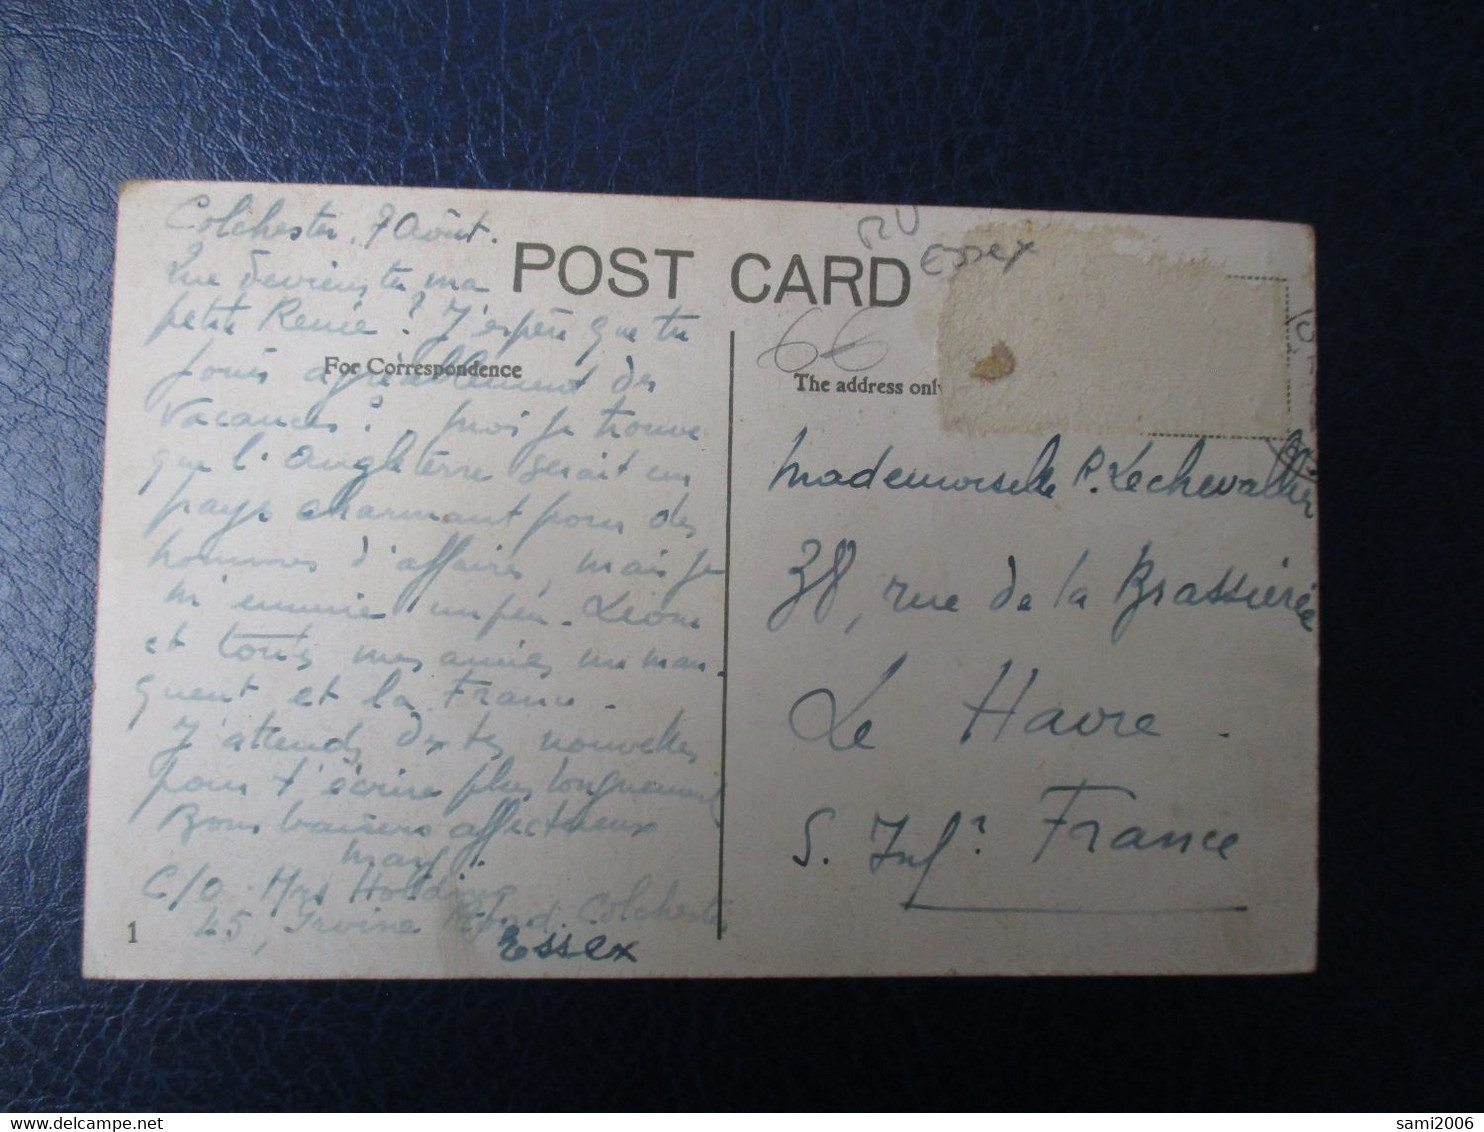 Colchester, 7 Août.
Que deviens tu ma
petite Renée ? J'espère que tu
jouis agréablement des
vacances ? moi je trouve
que l'Angleterre serait un
pays charmant pour des
hommes d'affaires, mais je
m'ennuie un peu. Léone
et toutes mes amies me man-
quent et la France.
J'attends de tes nouvelles
pour t'écrire plus longuement
Bons baisers affectueux
C/O Mrs Holding
45, Irvine Road. Colchester
Essex
1
POST CARD
For Correspondence
RU
Essex
66
The address only
Mademoiselle R. Lechevallier
38, rue de la Brasserie
Le Havre.
S. Infre France
sami2006